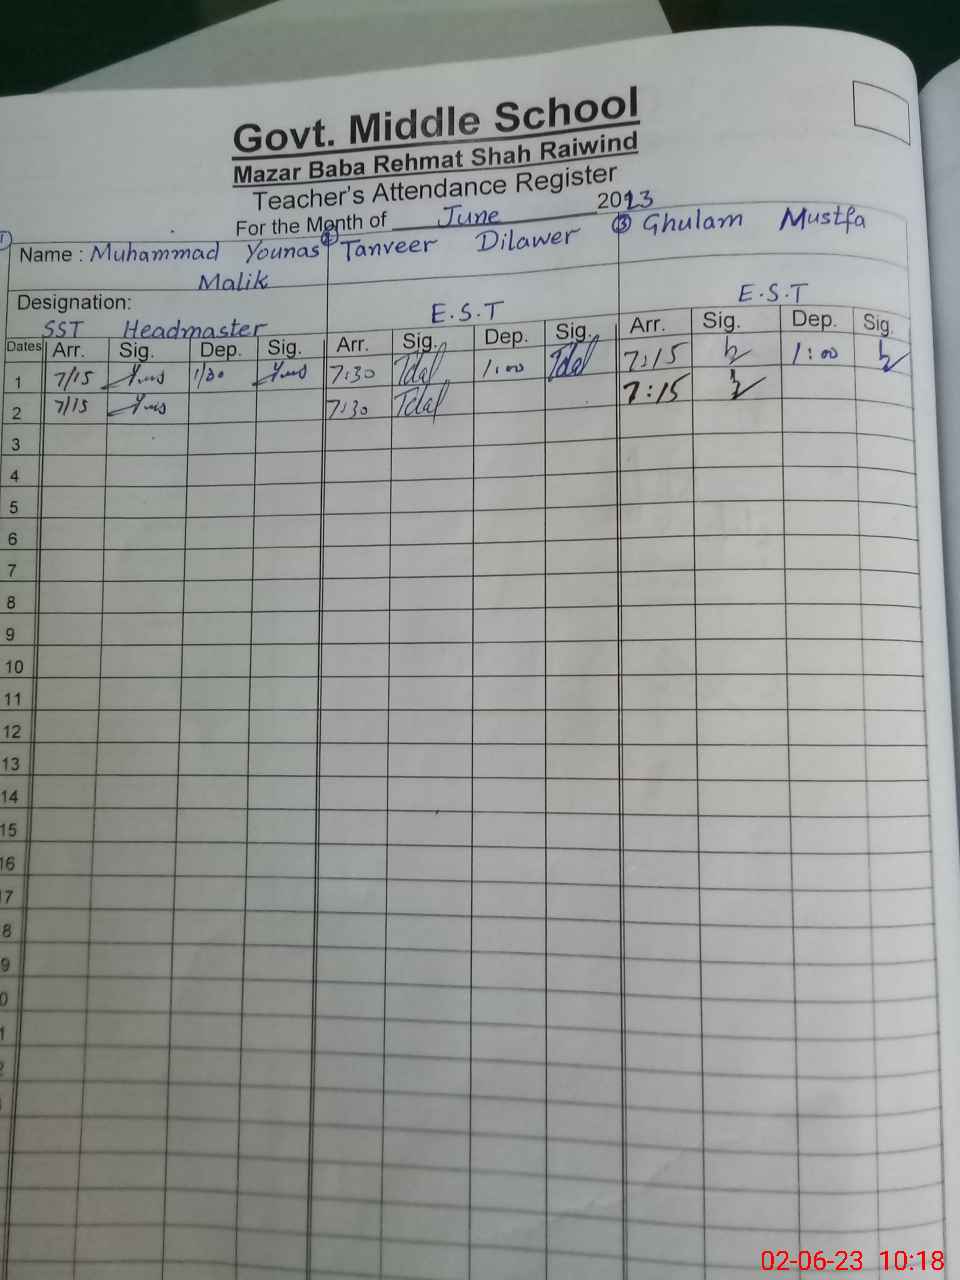 Govt. Middle School
Mazar Baba Rehmat Shah Raiwind
Teacher's Attendance Register
For the Month of June 2023
1 Name : Muhammad Younas Malik
2 Tanveer Dilawer
3 Ghulam Mustfa
Designation: SST Headmaster
E.S.T
E.S.T
Dates Arr. Sig. Dep. Sig. Arr. Sig. Dep. Sig. Arr. Sig. Dep. Sig.
1 7/15 7:30 1:00 7:15 1:00
2 7/15 7:30 7:15
3
4
5
6
7
8
9
10
11
12
13
14
15
16
02-06-23 10:18